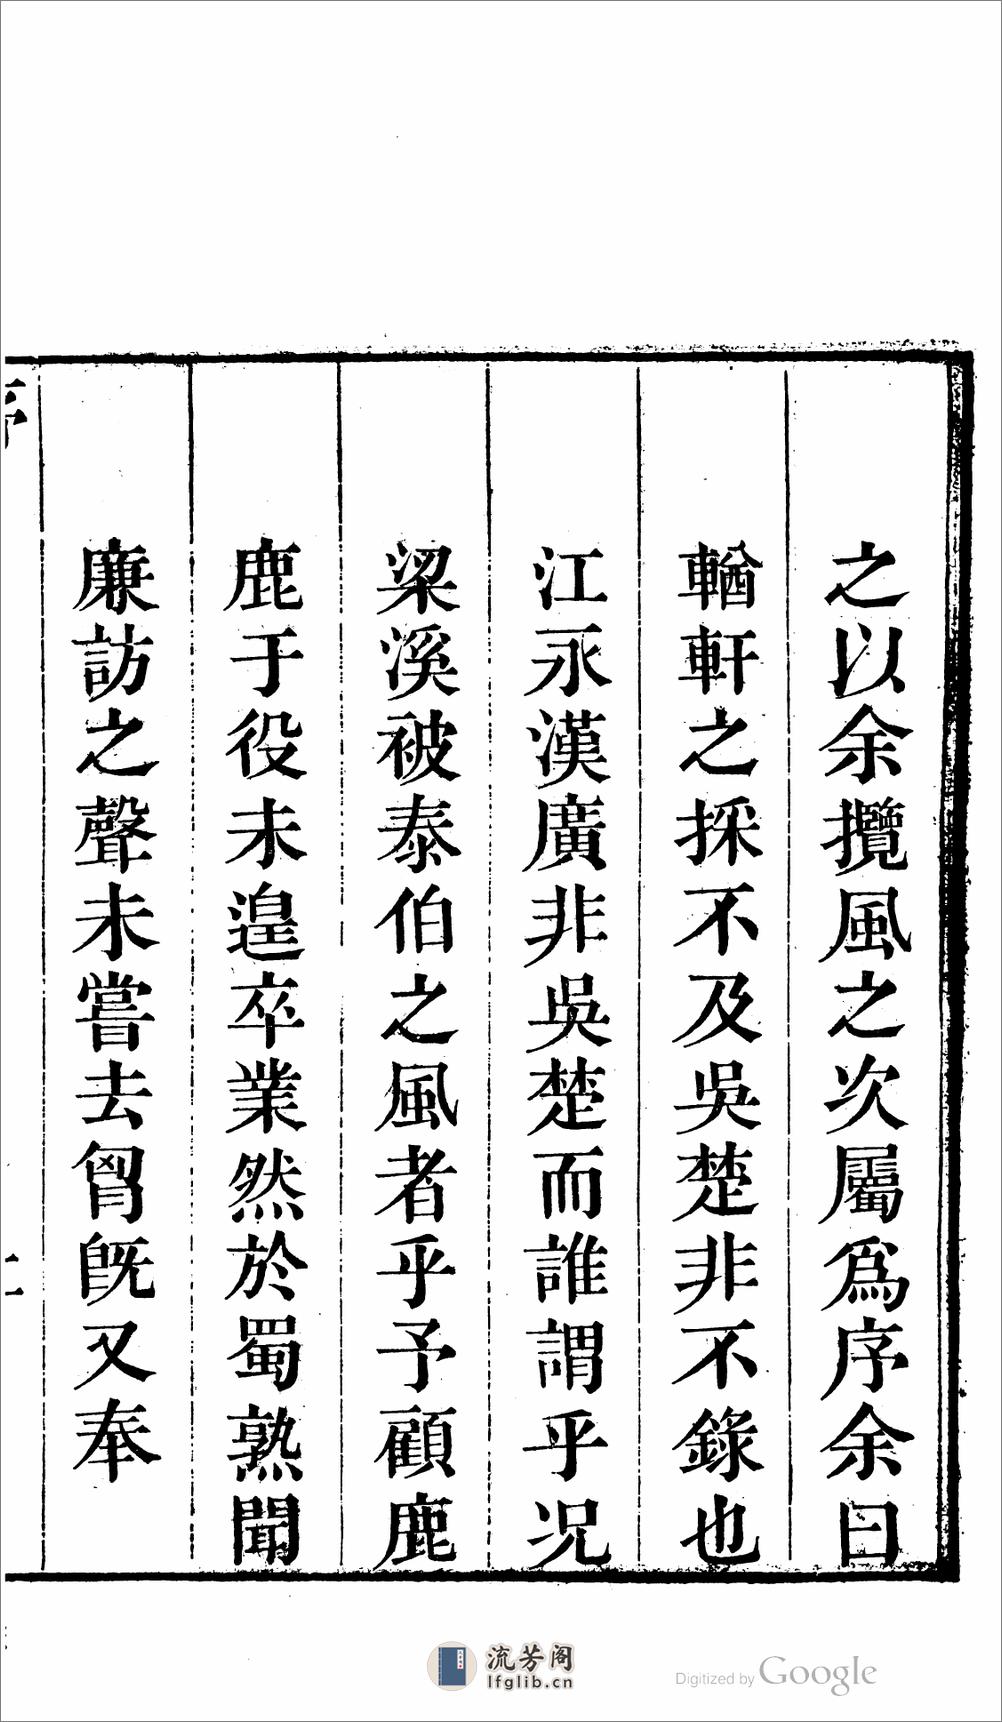 之以余攬風之次屬爲序余曰
輶軒之採不及吳楚非不錄也
江永漢廣非吳楚而誰謂乎况
梁溪被泰伯之風者乎予顧鹿
鹿于役未遑卒業然於蜀熟聞
廉訪之聲未嘗去胷旣又奉
序
流芳阁
lfglib.cn
Digitized by Google